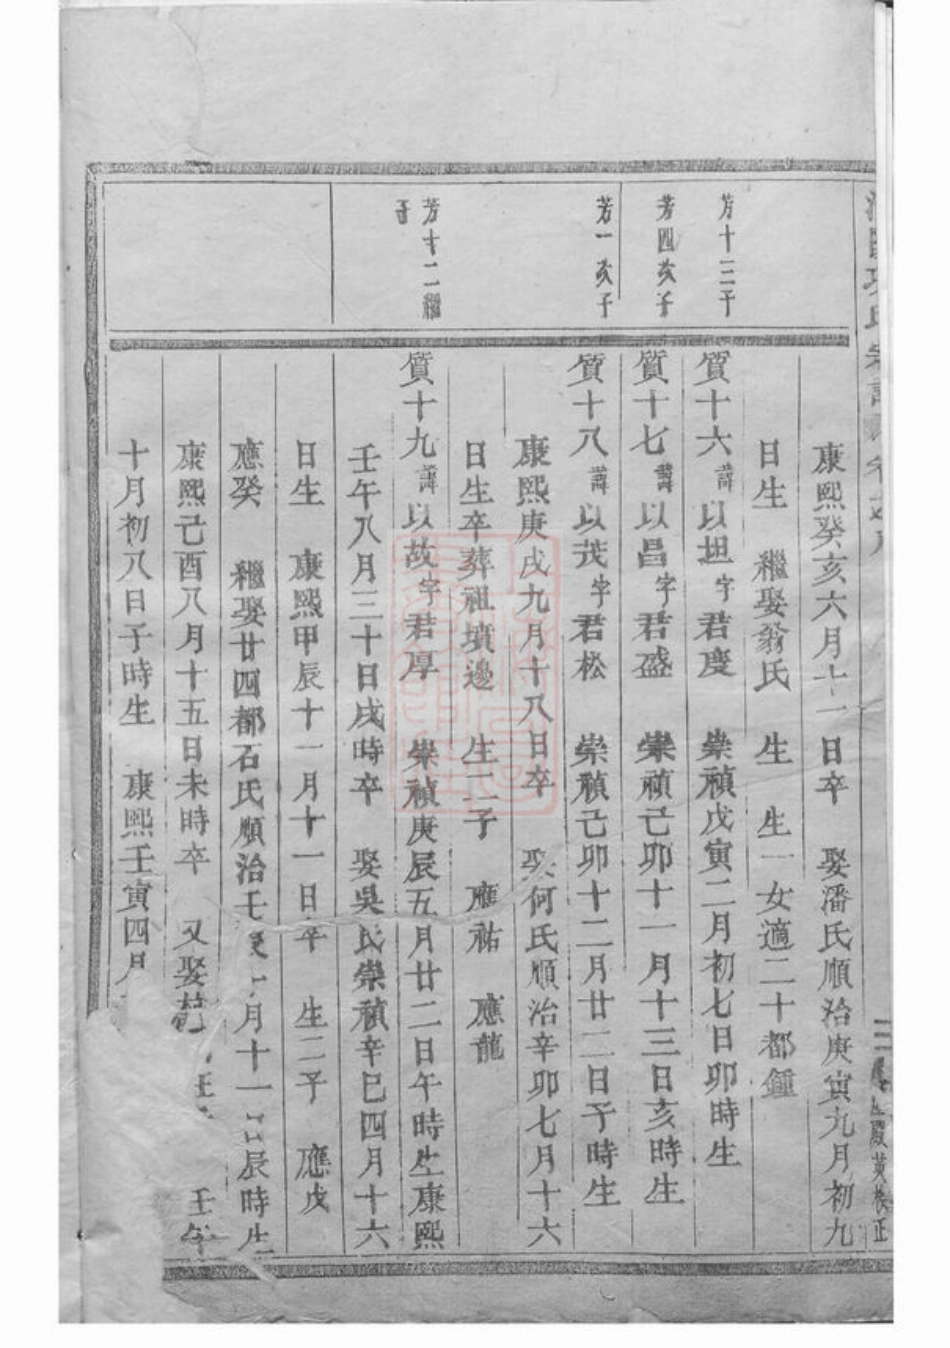 氏
芳十三子
芳四亥子
芳一亥子
芳十二繼
子
康熙癸亥六月十一日卒 娶潘氏順治庚寅九月初九
日生 繼娶翁氏 生 生一女適二十都鍾
質十六諱以坦字君度 崇禎戊寅二月初七日卯時生
質十七諱以昌字君盛 崇禎己卯十一月十三日亥時生
質十八諱以茂字君松 崇禎己卯十二月廿二日子時生
康熙庚戌九月十八日卒 娶何氏順治辛卯七月十六
日生卒葬祖墳邊 生二子 應祐 應龍
質十九諱以故字君厚 崇禎庚辰五月廿二日午時生康熙
壬午八月三十日戌時卒 娶吳氏崇禎辛巳四月十六
日生 康熙甲辰十一月十一日卒 生二子 應戊
應癸 繼娶廿四都石氏順治壬辰 月十一日辰時生
康熙己酉八月十五日未時卒 又娶 壬午
十月初八日子時生 康熙壬寅四月
校正